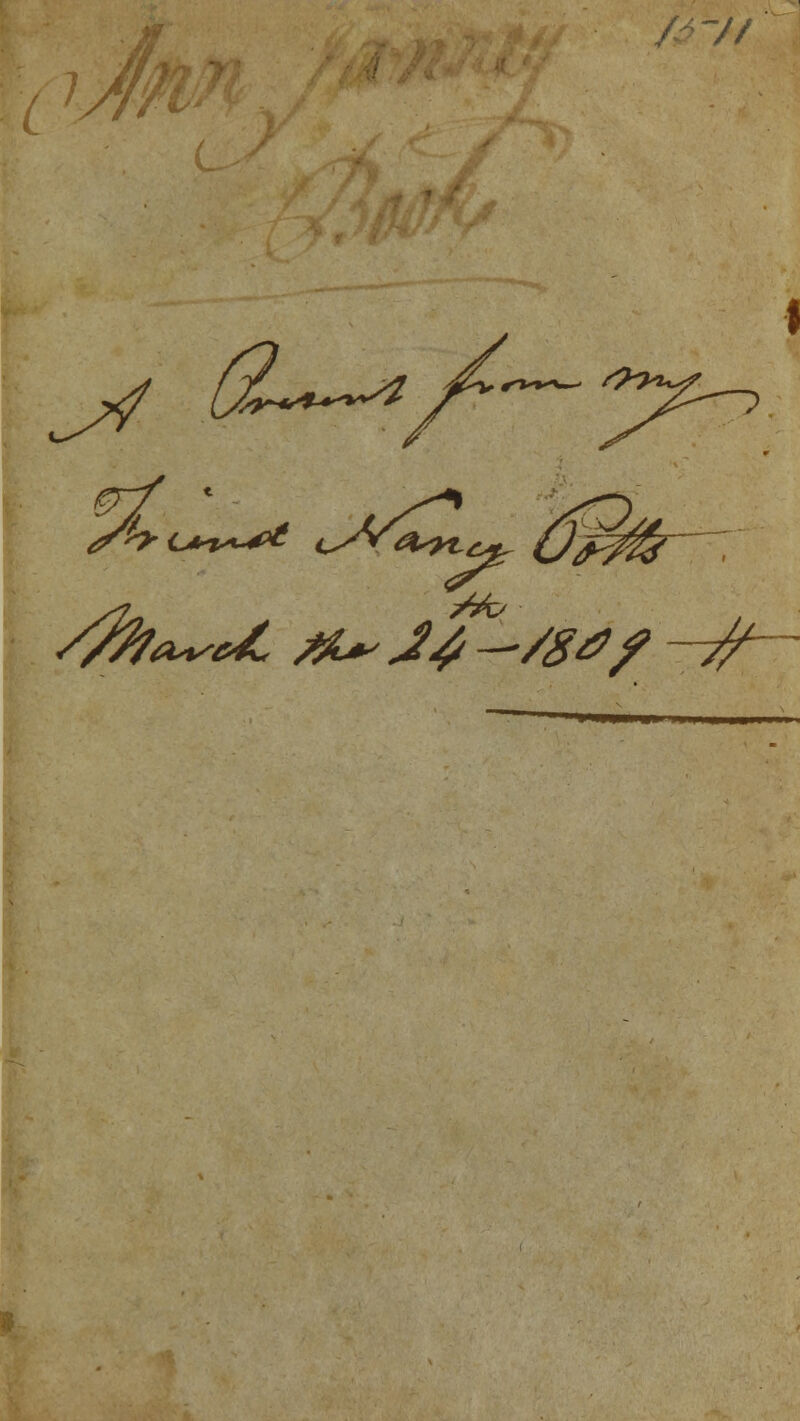 15-11
Ann Janney
Book
A Present from my
Friend Nancy Potts
March the 24th - 1809